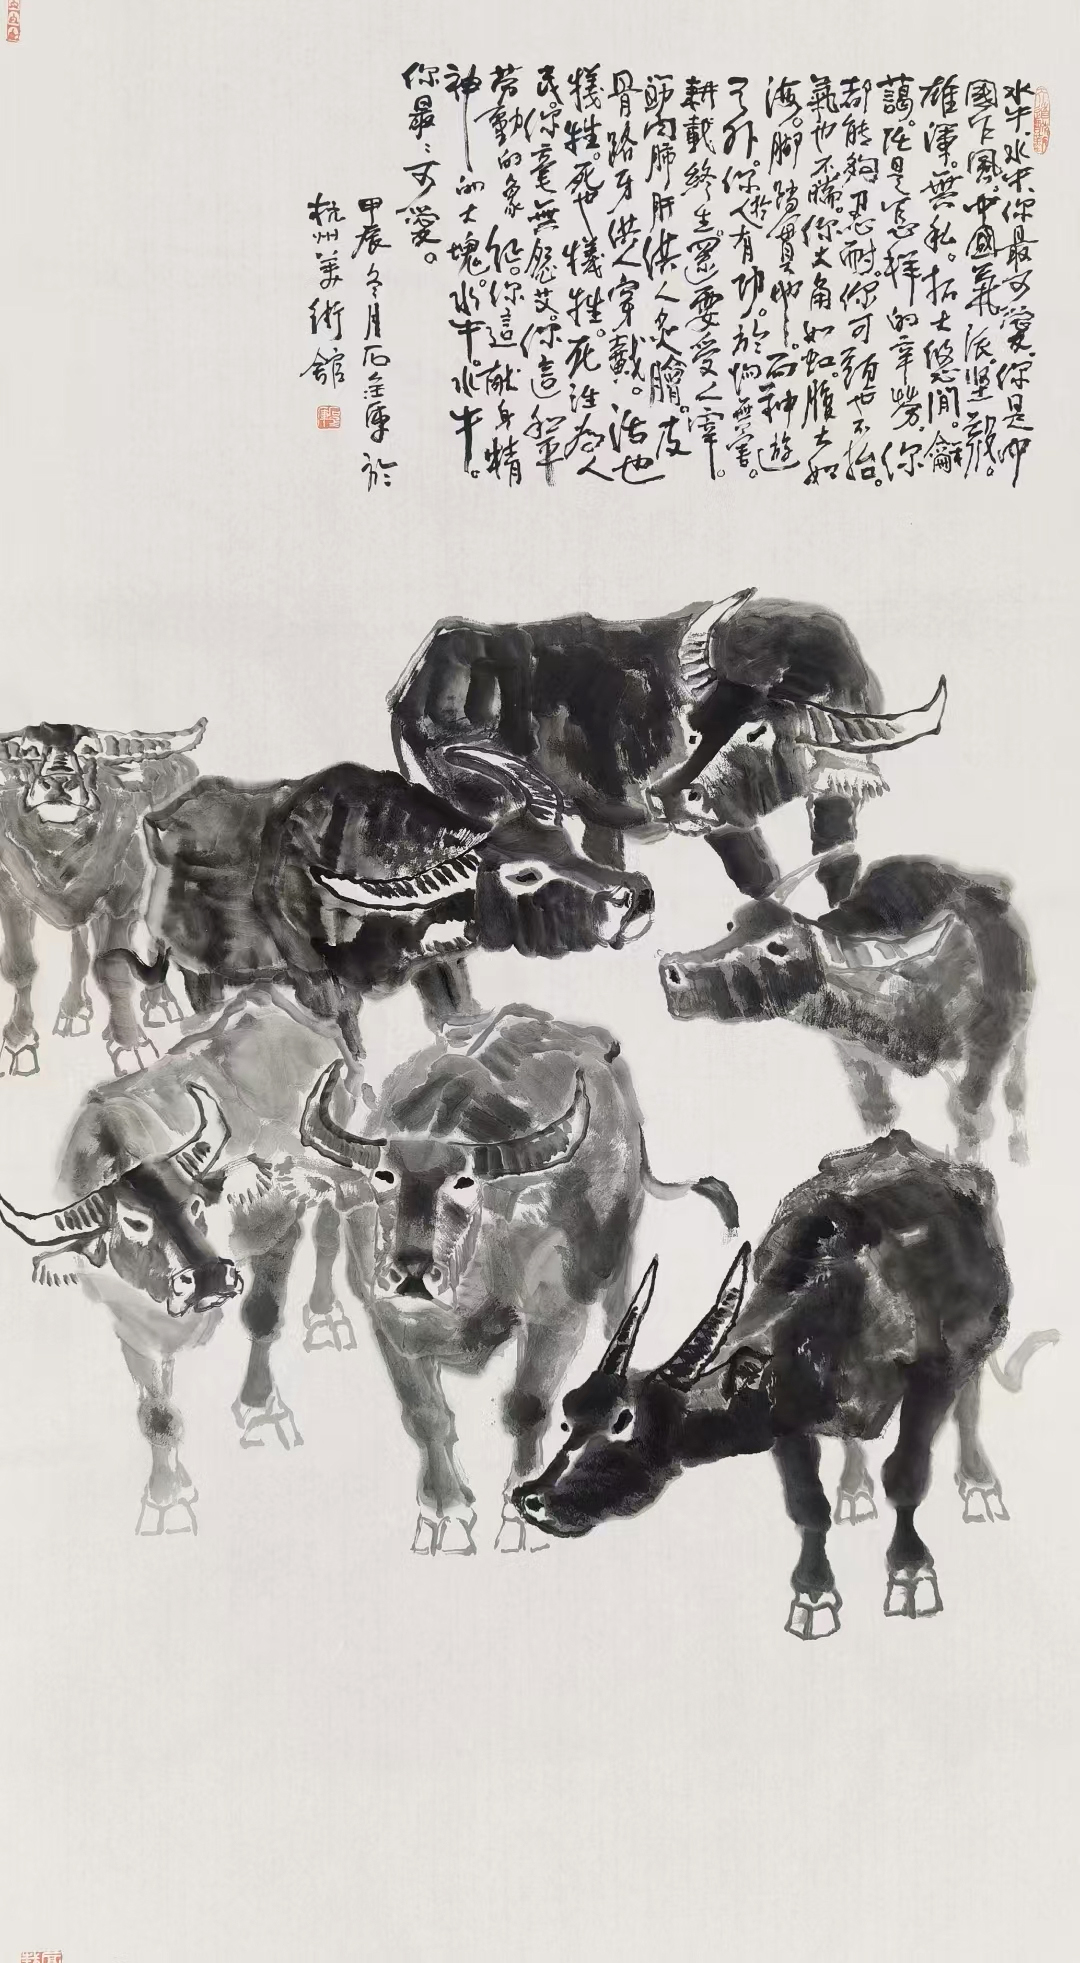 水牛、水牛、你最可愛。你是中
國作風。中國氣派。堅毅。
雄渾。無私。拓大。悠閒。龢
藹。任是怎樣的辛勞。你
都能夠忍耐。你可頭也不抬。
氣也不喘。你大角如虹。腹大如
海。腳踏實地。而神遊
天外。你於人有功。於物無害。
耕載終生。還要受人宰。
筋肉肺肝供人炙膾。皮
骨蹄牙供人穿戴。活也
犧牲。死也犧牲。死活為人
民。你毫無怨艾。你這和平
勞動的象徵。你這獻身精
神的大塊。水牛。水牛。
你最〻可愛。
甲辰冬月於
杭州美術館